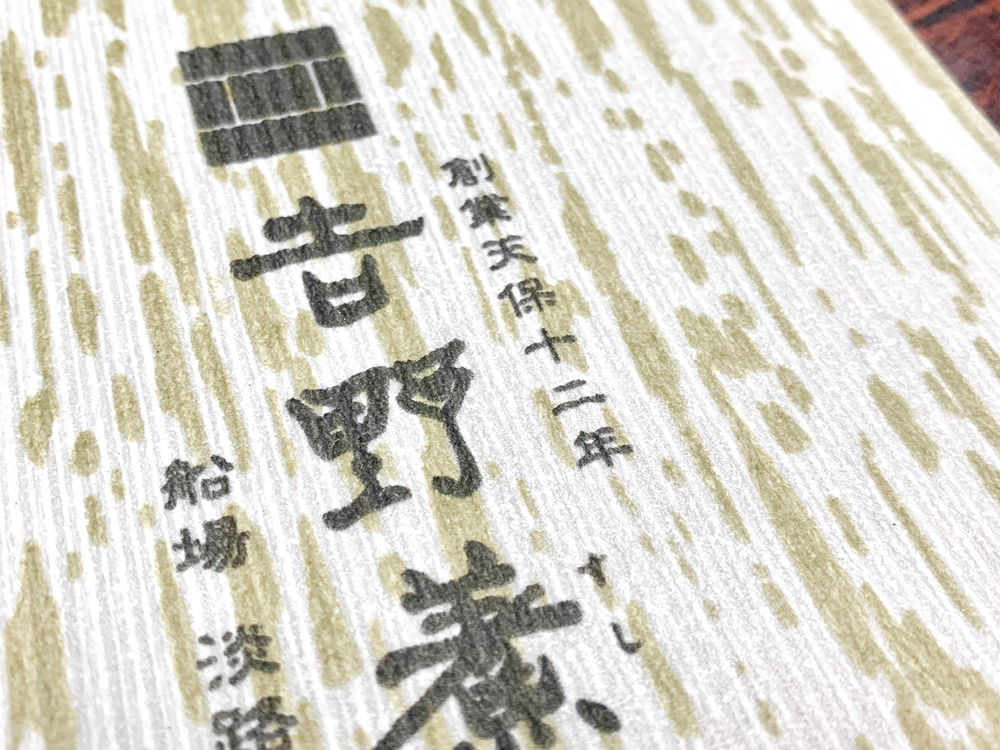 創業天保十二年
すし
吉野
船場 淡路